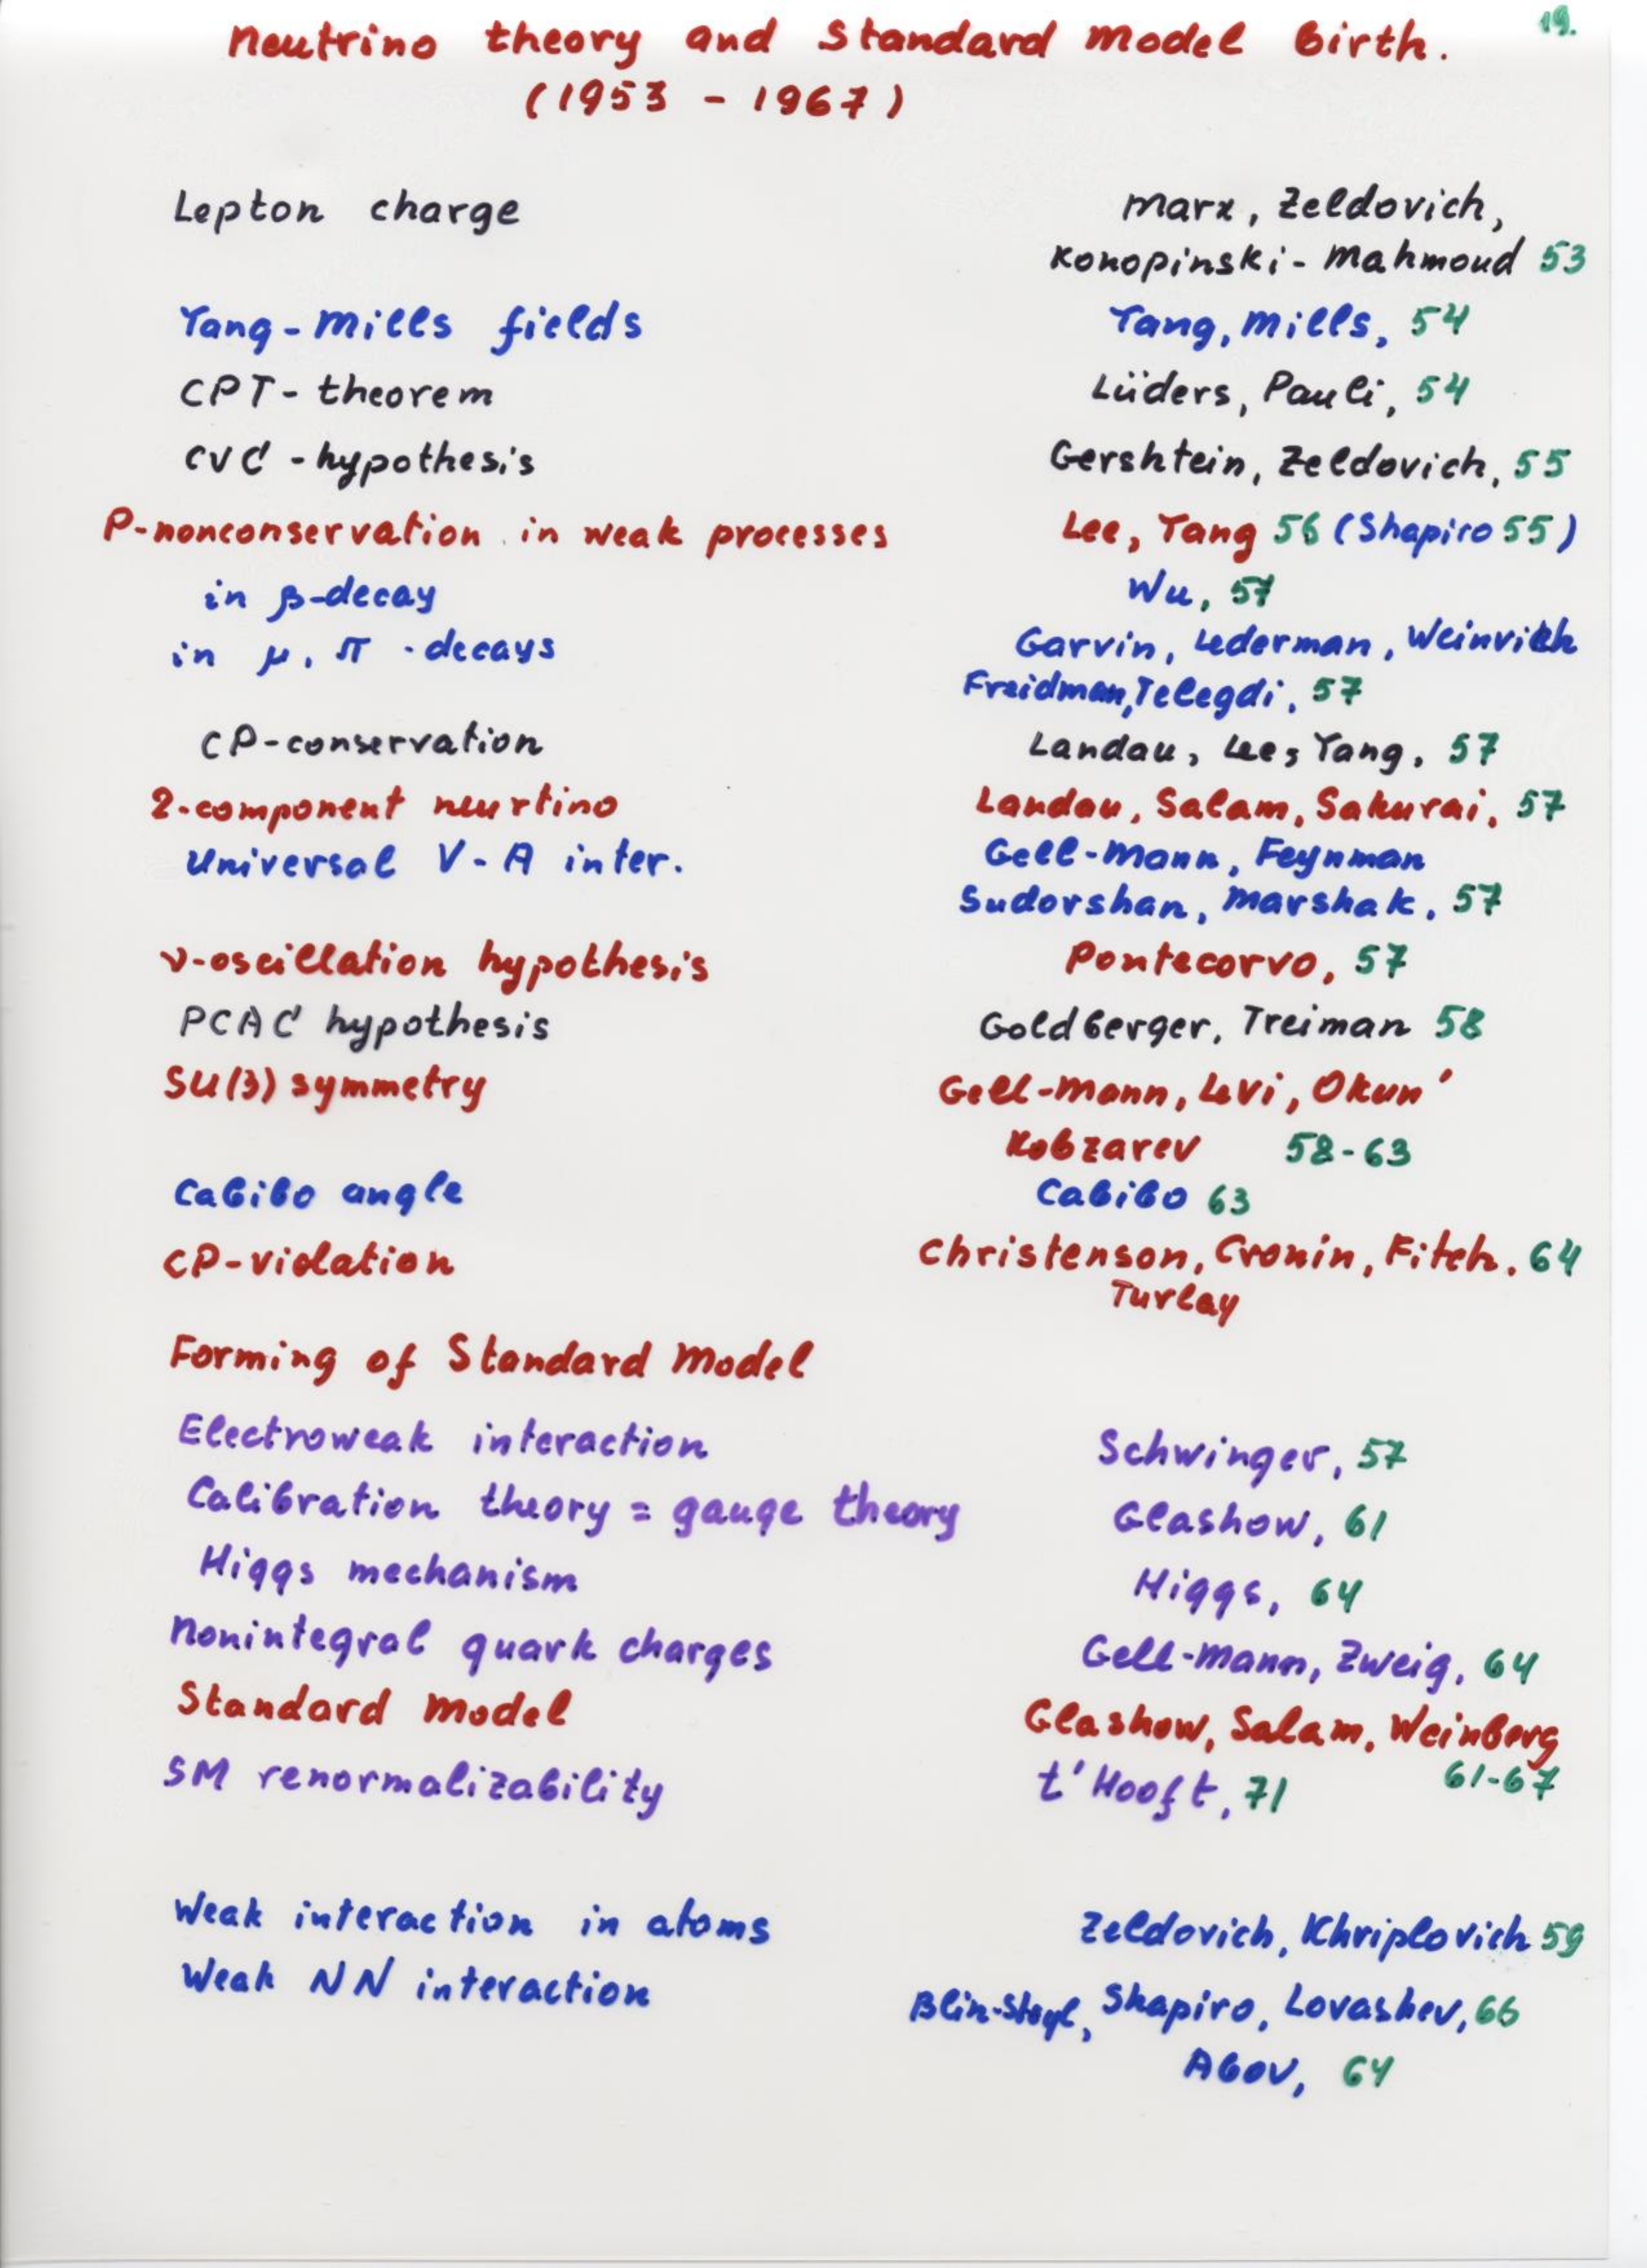 19.
Neutrino theory and Standard Model birth.
(1953 - 1967)
Lepton charge Marx, Zeldovich,
Konopinski - Mahmoud 53
Yang - Mills fields Yang, Mills, 54
CPT - theorem Lüders, Pauli, 54
CVC - hypothesis Gershtein, Zeldovich, 55
P-nonconservation in weak processes Lee, Yang 56 (Shapiro 55)
in β-decay Wu, 57
in μ, π - decays Garvin, Lederman, Weinrich
Freidman, Telegdi, 57
CP-conservation Landau, Lee, Yang, 57
2-component neurtino Landau, Salam, Sakurai, 57
Universal V - A inter. Gell-Mann, Feynman
Sudorshan, Marshak, 57
ν-oscillation hypothesis Pontecorvo, 57
PCAC hypothesis Goldberger, Treiman 58
SU(3) symmetry Gell-Mann, Levi, Okun'
Kobzarev 58-63
Cabibo angle Cabibo 63
CP-violation Christenson, Cronin, Fitch, 64
Turlay
Forming of Standard Model
Electroweak interaction Schwinger, 57
Calibration theory = gauge theory Glashow, 61
Higgs mechanism Higgs, 64
Nonintegral quark charges Gell-Mann, Zweig, 64
Standard Model Glashow, Salam, Weinberg
61-67
SM renormalizability t'Hooft, 71
Weak interaction in atoms Zeldovich, Khriplovich 59
Weak NN interaction Blin-Stoyl, Shapiro, Lovashev, 66
Abov, 64